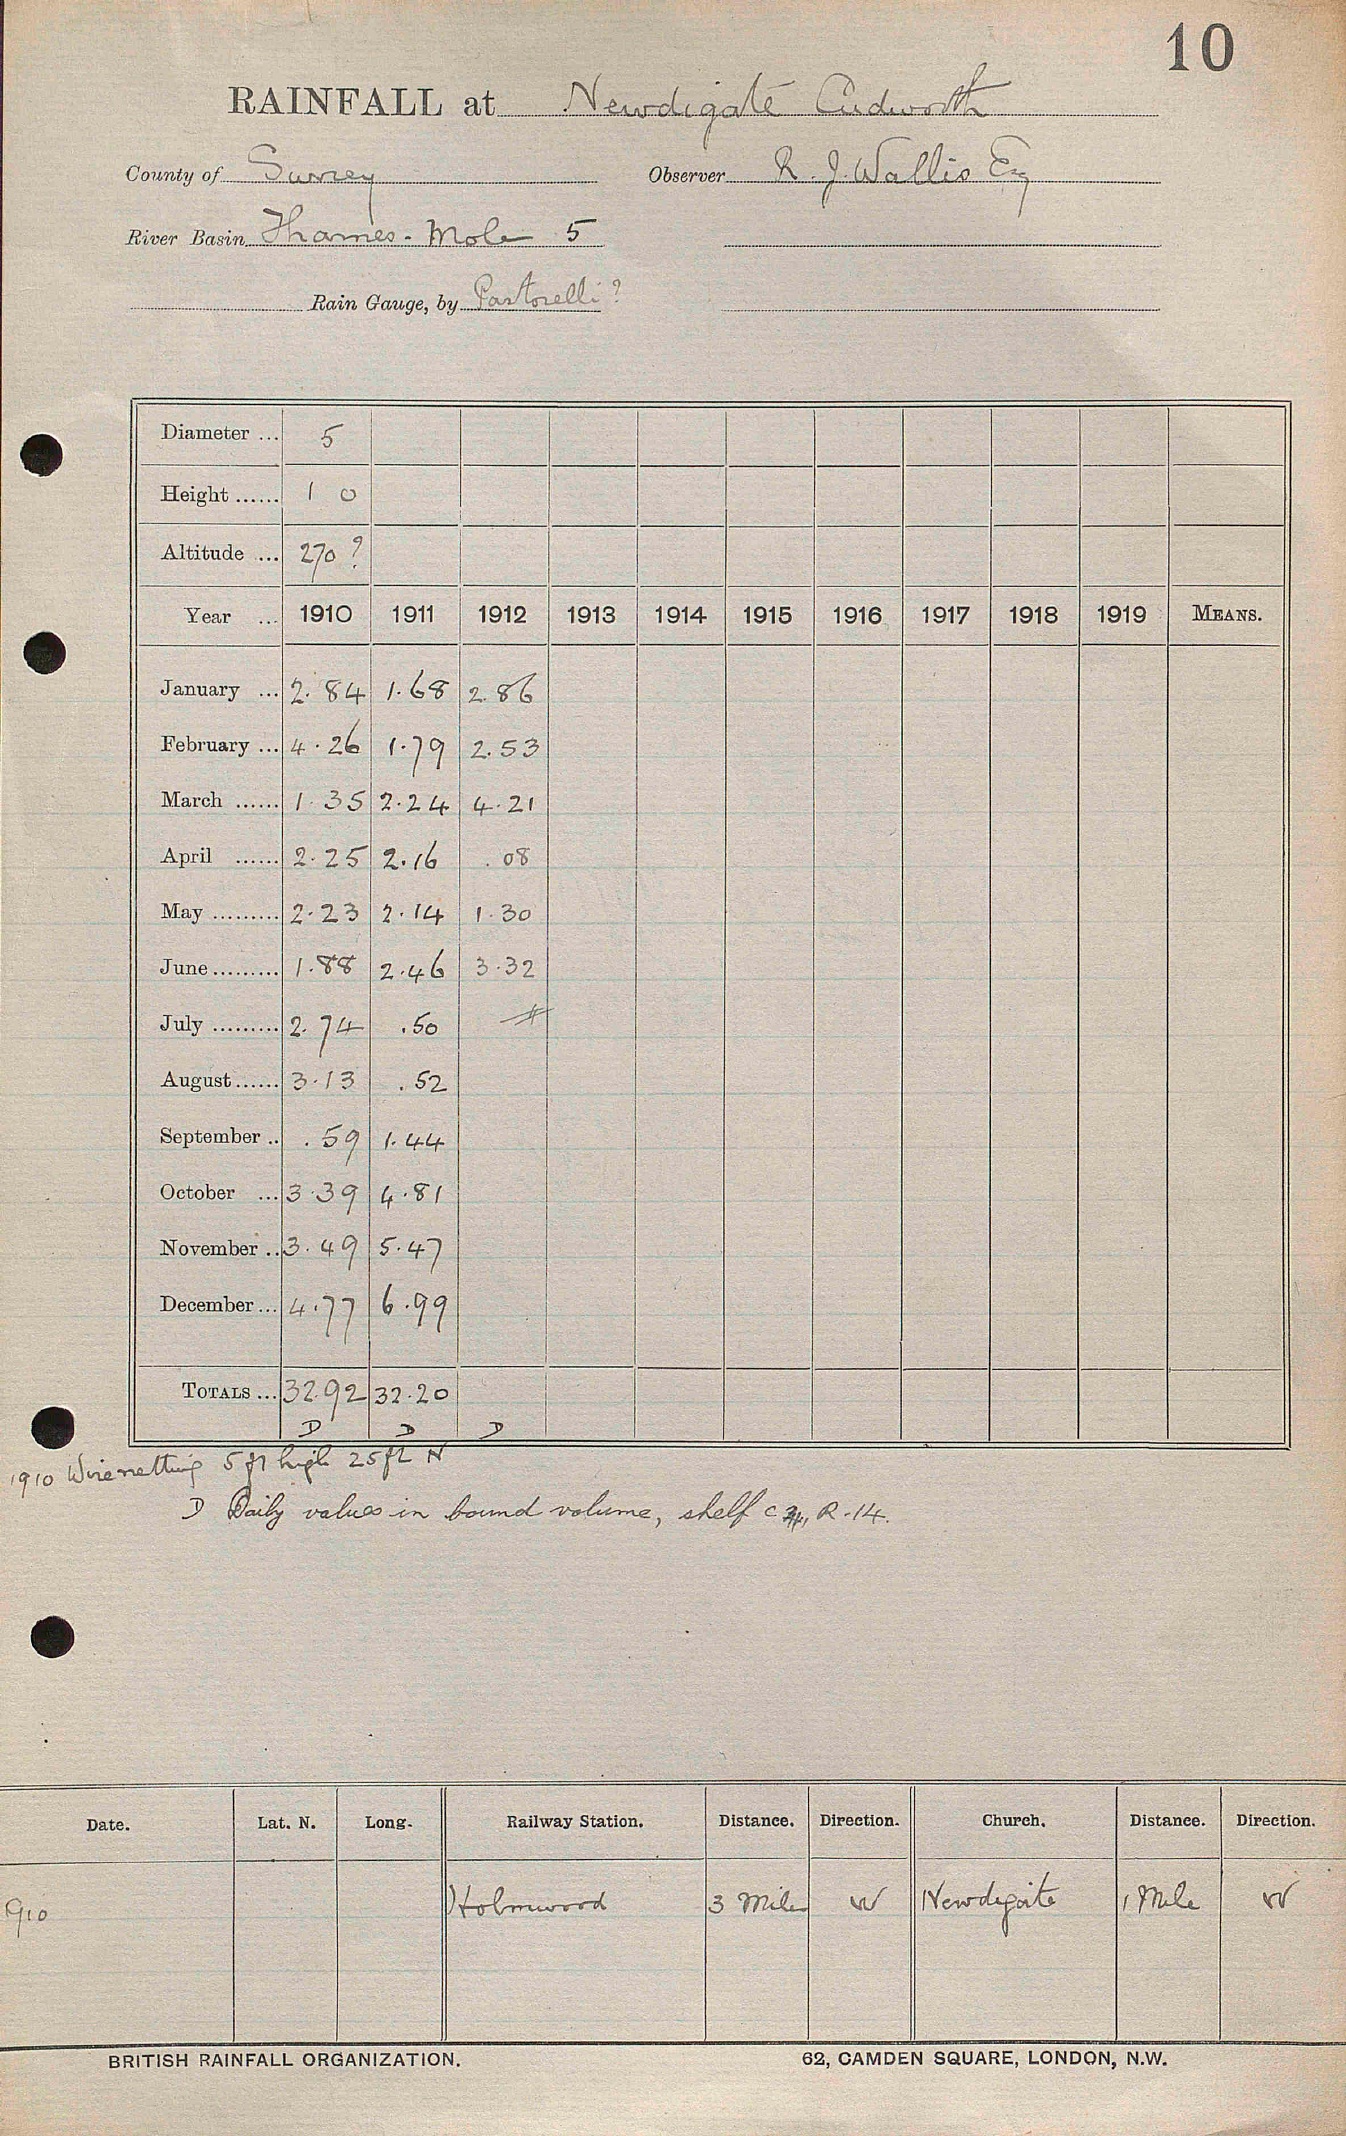 10
RAINFALL at Newdigate Cudworth
County of Surrey Observer R. J. Wallis Esq
River Basin Thames - Mole 5
Rain Gauge, by Pastorelli ?
Diameter ... 5
Height ...... 1 0
Altitude ... 270 ?
Year ... 1910 1911 1912 1913 1914 1915 1916 1917 1918 1919 MEANS.
January ... 2.84 1.68 2.86
February ... 4.26 1.79 2.53
March ...... 1.35 2.24 4.21
April ...... 2.25 2.16 .08
May ......... 2.23 2.14 1.30
June ......... 1.88 2.46 3.32
July ......... 2.74 .50
August ...... 3.13 .52
September .. .59 1.44
October ... 3.39 4.81
November .. 3.49 5.47
December ... 4.77 6.99
TOTALS ... 32.92 32.20
D D D
1910 Wire netting 5 ft high 25 ft N
D Daily values in bound volume, shelf C 4, R.14.
Date. Lat. N. Long. Railway Station. Distance. Direction. Church. Distance. Direction.
910 Holmwood 3 Miles W Newdigate 1 Mile W
BRITISH RAINFALL ORGANIZATION. 62, CAMDEN SQUARE, LONDON, N.W.